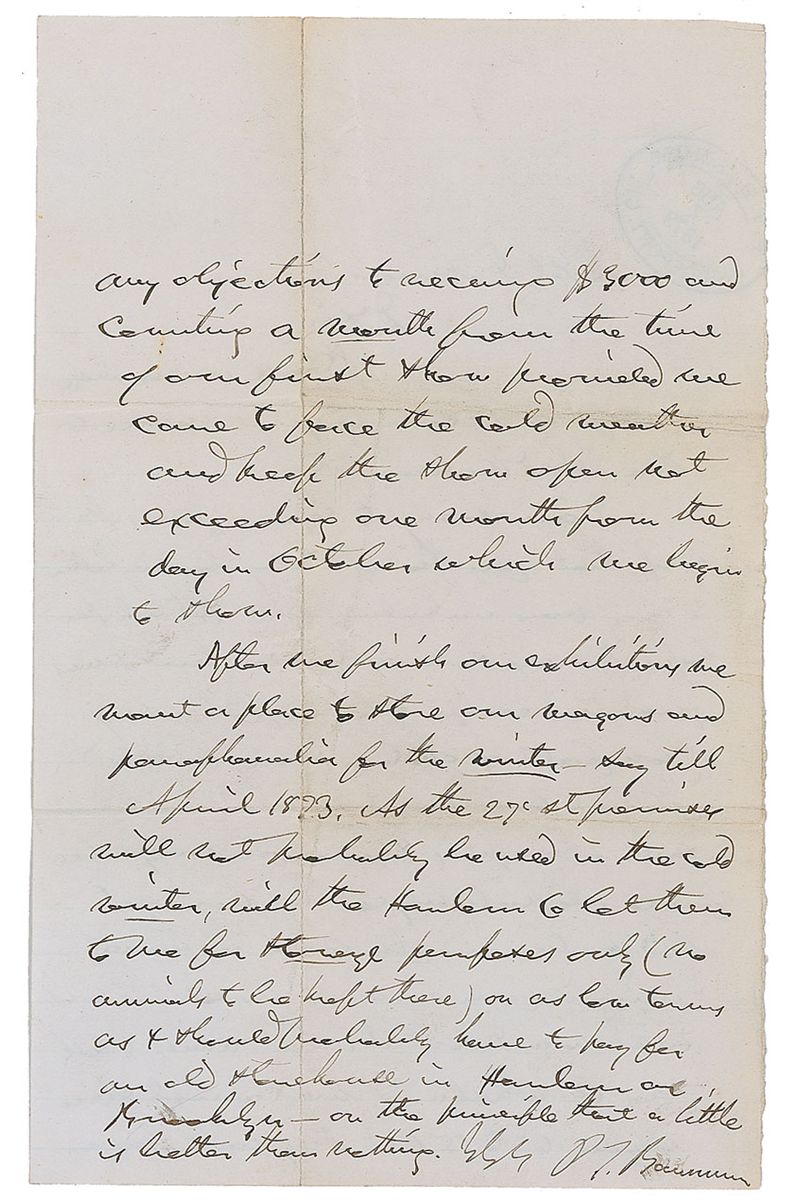 any objections to receiving $3000 and
counting a month from the time
of our first show provided we
come to face the cold weather
and keep the show open not
exceeding one month from the
day in October which we begin
to show.
After we finish our exhibitions we
want a place to store our wagons and
paraphanalia for the winter – say till
April 1873. As the 27th st premises
will not probably be used in the cold
winter, will the Harlem Co let them
to me for storage purposes only (no
animals to be kept there) on as low terms
as I should probably have to pay for
an old storehouse in Harlem or
Brooklyn – on the principle that a little
is better than nothing. P. T. Barnum